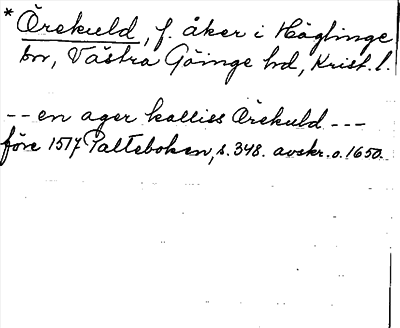 * Örekuld, f. åker i Häglinge
bv, Västra Göinge hd, Krist. l.
-- en ager kalliss Ørekuld ---
före 1517 Palteboken, s. 348. avskr. o. 1650.